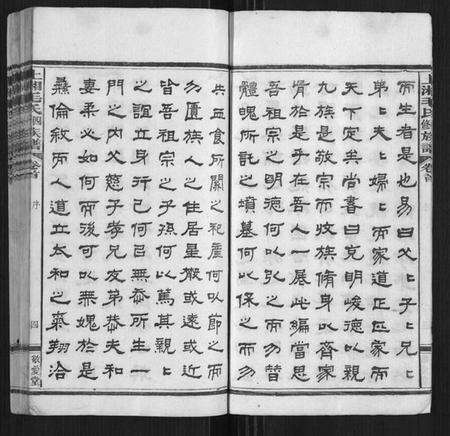 上湘毛氏四修族譜 卷首
而生者是也易曰父〻子〻兄〻
弟〻夫〻婦〻而家道正正家而
天下定矣尚書曰克明峻德以親
九族是敬宗而收族脩身以齊家
胥於是乎在吾人一展此編當思
吾祖宗之明德何以弘之而勿替
體魄所託之墳墓何以保之而勿
失血食所關之祀產何以節之而
勿匱族人之住居星散或遠或近
皆吾祖宗之子孫何以篤其親〻
之誼立身行己何以無忝所生一
門之內父慈子孝兄友弟恭夫和
妻柔必如何而後可以無媿於是
彝倫敘而人道立太和之氣翔洽
上湘毛氏四修族譜 卷首 序 四 敬愛堂